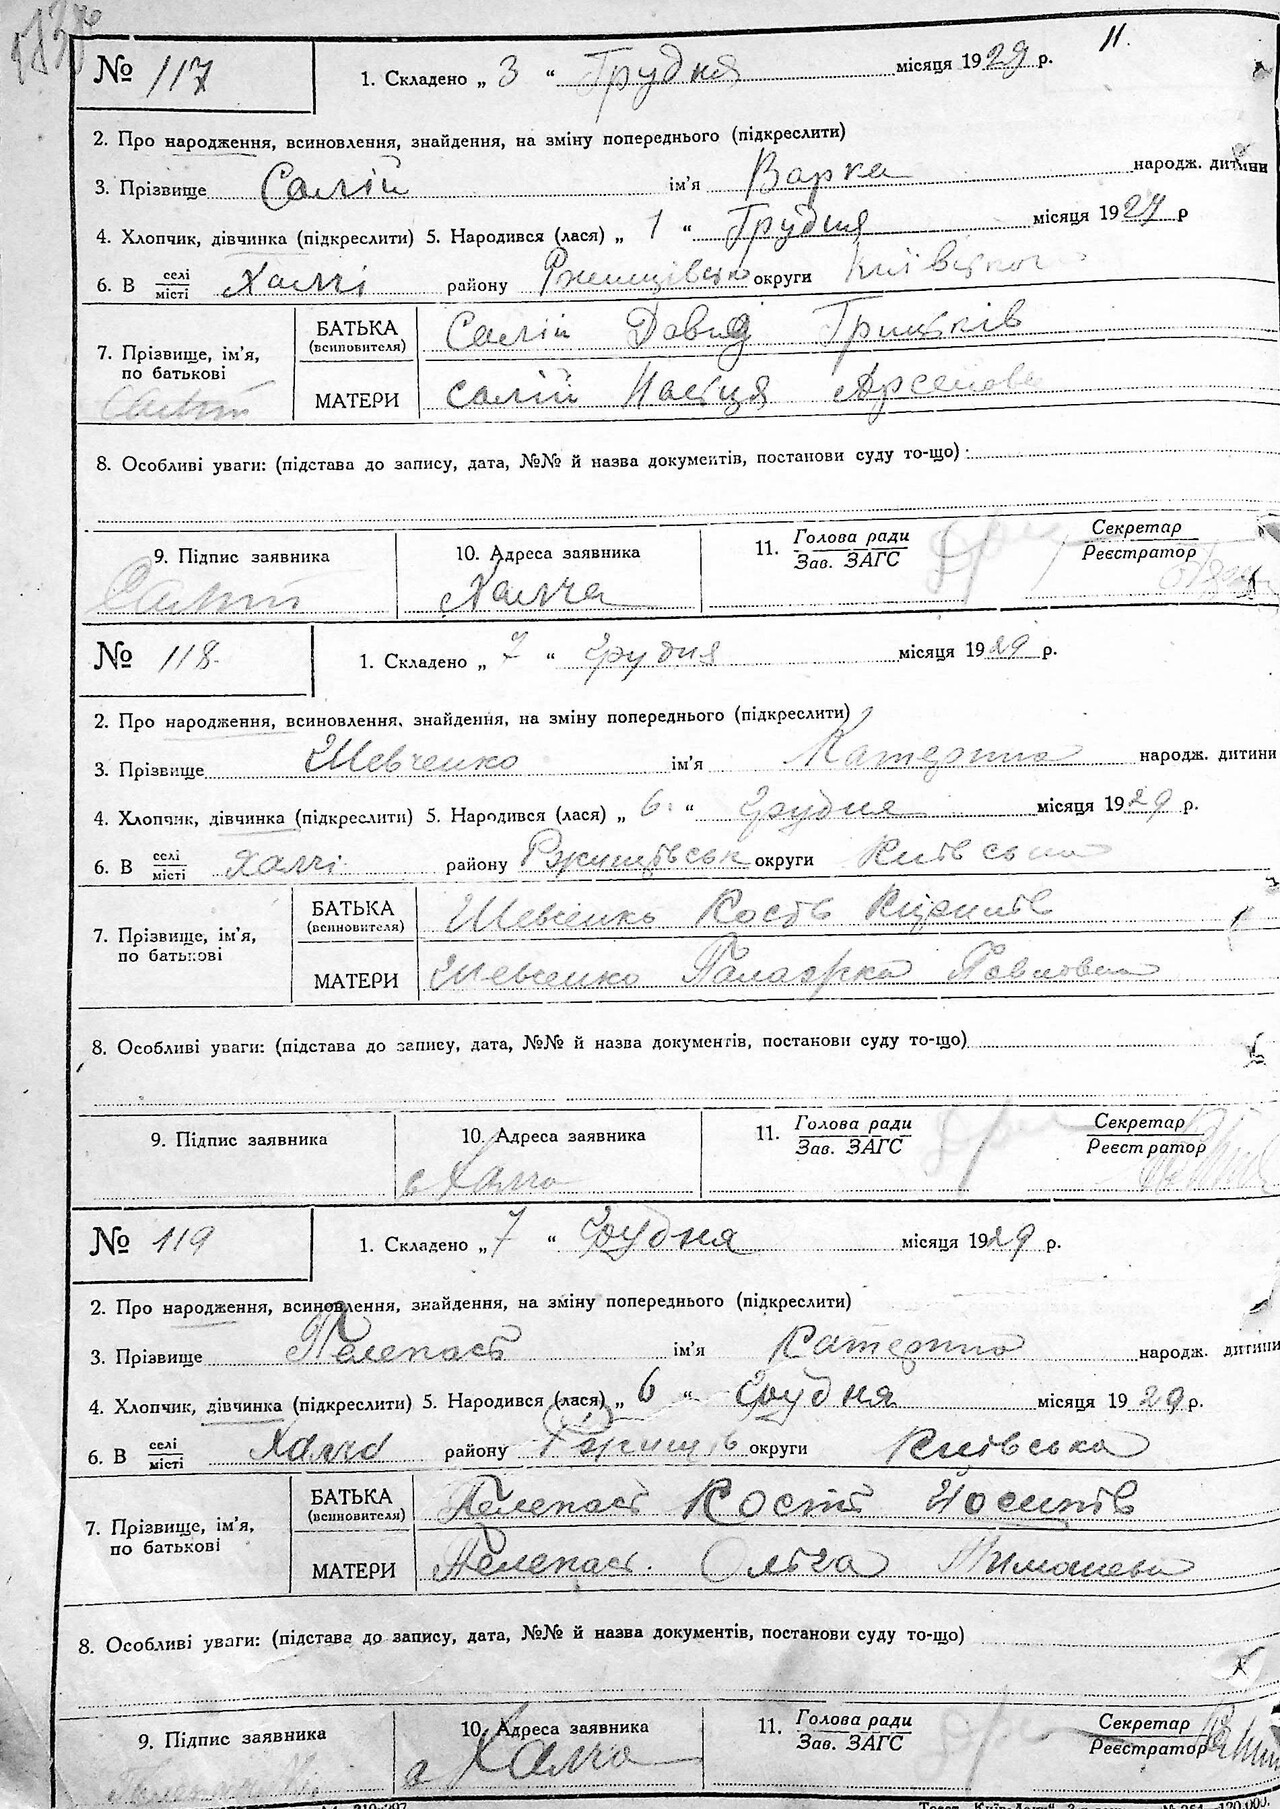 11.
№ 117 1. Складено „ 3 “ Грудня місяця 1929 р.
2. Про народження, всиновлення, знайдення, на зміну попереднього (підкреслити)
3. Прізвище Салій ім'я Варка народж. дитини
4. Хлопчик, дівчинка (підкреслити) 5. Народився (лася) „ 1 “ Грудня місяця 1929 р
6. В селі місті Халчі району Ржищівськ округи Київської
7. Прізвище, ім'я, по батькові
БАТЬКА (всиновителя) Салій Давид Грицьків
МАТЕРИ Салій Настця Арсенова
Салій
8. Особливі уваги: (підстава до запису, дата, №№ й назва документів, постанови суду то-що)
9. Підпис заявника 10. Адреса заявника 11. Голова ради Зав. ЗАГС Секретар Реєстратор
Салій Халча
№ 118. 1. Складено „ 7 “ грудня місяця 1929 р.
2. Про народження, всиновлення, знайдення, на зміну попереднього (підкреслити)
3. Прізвище Шевченко ім'я Катерина народж. дитини
4. Хлопчик, дівчинка (підкреслити) 5. Народився (лася) „ 6. “ грудня місяця 1929 р.
6. В селі місті Халчі району Ржищівськ округи Київська
7. Прізвище, ім'я, по батькові
БАТЬКА (всиновителя) Шевченко Кость Кирилів
МАТЕРИ Шевченко Палажка Павловна
8. Особливі уваги: (підстава до запису, дата, №№ й назва документів, постанови суду то-що)
9. Підпис заявника 10. Адреса заявника 11. Голова ради Зав. ЗАГС Секретар Реєстратор
с Халча
№ 119 1. Складено „ 7 “ Грудня місяця 1929 р.
2. Про народження, всиновлення, знайдення, на зміну попереднього (підкреслити)
3. Прізвище Пелепась ім'я Катерина народж. дитини
4. Хлопчик, дівчинка (підкреслити) 5. Народився (лася) „ 6 “ Грудня місяця 1929 р.
6. В селі місті Халча району Ржищів округи Київська
7. Прізвище, ім'я, по батькові
БАТЬКА (всиновителя) Пелепась Кость Йосипів
МАТЕРИ Пелепась. Ольга Тимошева
8. Особливі уваги: (підстава до запису, дата, №№ й назва документів, постанови суду то-що)
9. Підпис заявника 10. Адреса заявника 11. Голова ради Зав. ЗАГС Секретар Реєстратор
с Халча